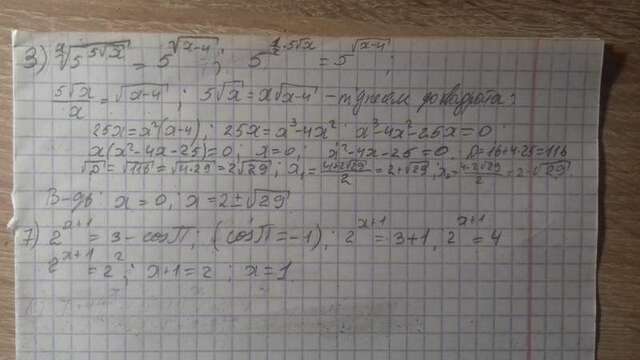 3) ˣ√(5^(5√x)) = 5^(√(x-4)); 5^(1/x · 5√x) = 5^(√(x-4));
5√x/x = √(x-4); 5√x = x√(x-4) -
25x = x²(x-4); 25x = x³-4x² x³-4x²-25x=0;
x(x²-4x-25)=0; x=0; x²-4x-25=0. D=16+4·25=116
√D = √116 = √(4·29) = 2√29; x₁ = (4+2√29)/2 = 2+√29; x₂ = (4-2√29)/2 = 2-√29
В-дь: x=0; x=2±√29
7) 2^(x+1) = 3 - cosπ; (cosπ = -1); 2^(x+1) = 3+1; 2^(x+1) = 4
2^(x+1) = 2²; x+1=2; x=1